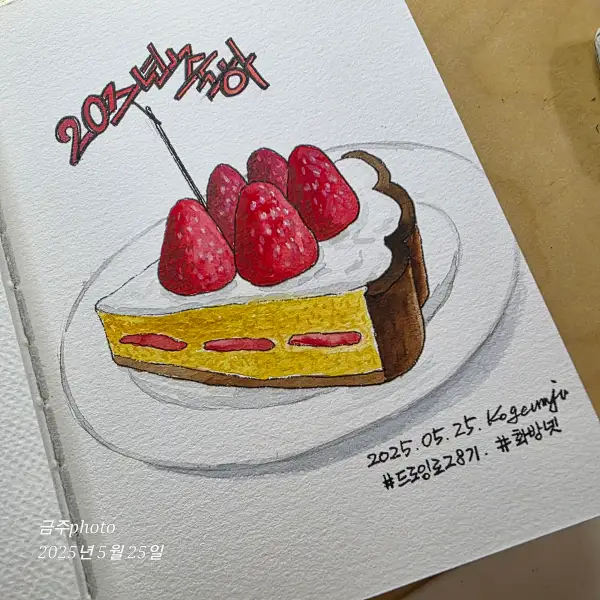 20주년 축하
2025.05.25. Kogeumju
#드로잉로28기. #화방넷
금주photo
2025년 5월 25일